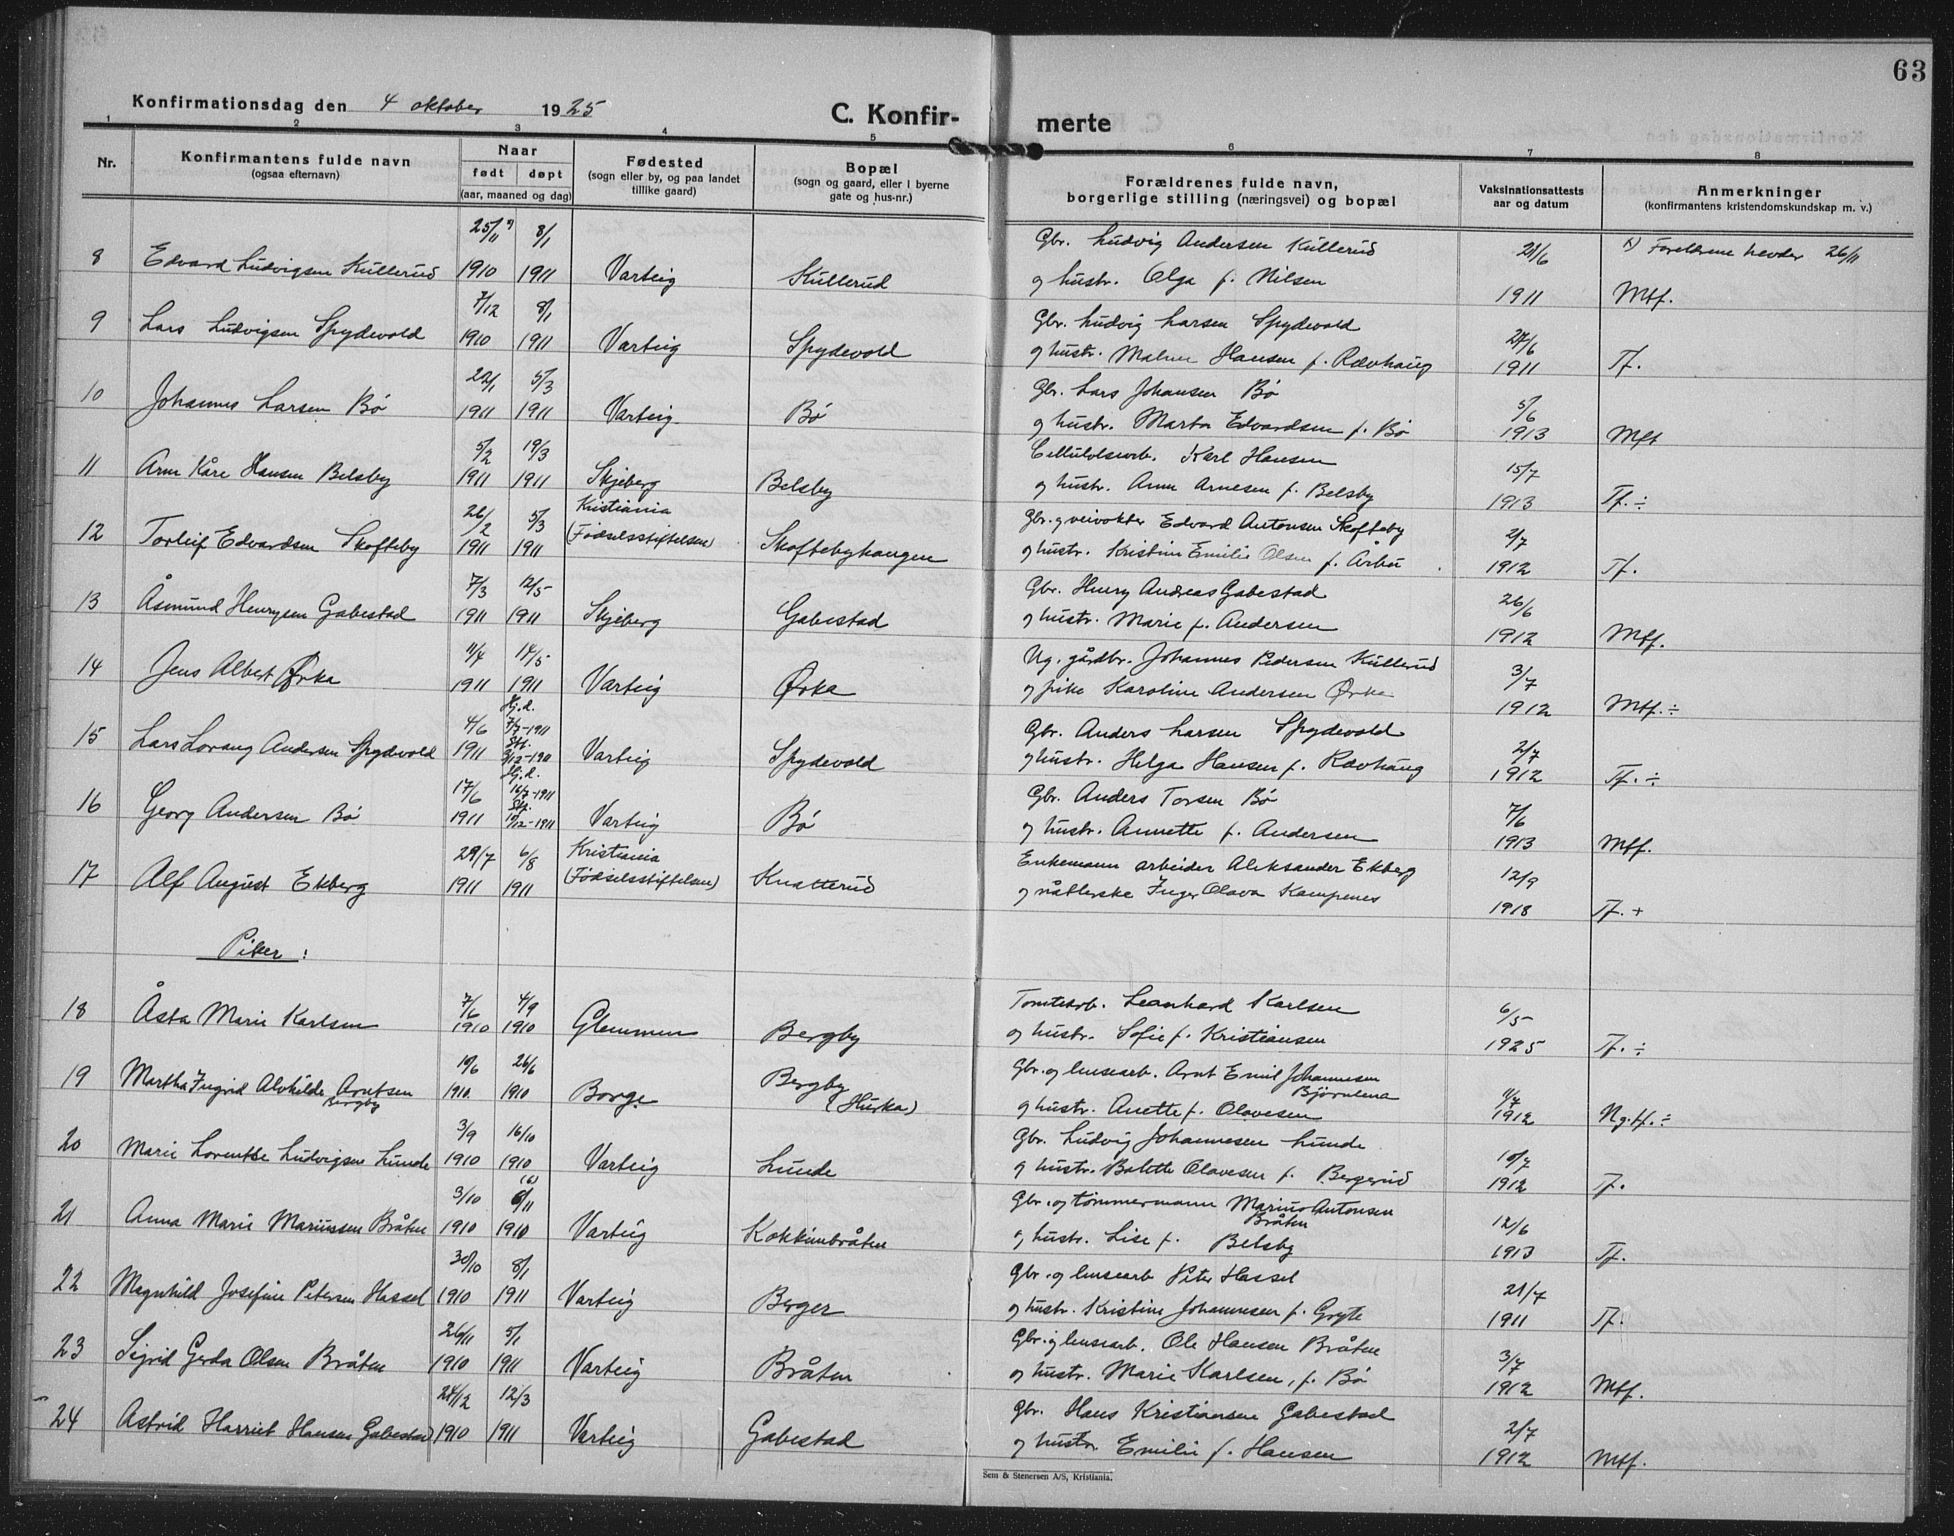 63
Konfirmationsdag den 4 oktober 1925
C. Konfir- merte
1 2 3 4 5 6 7 8
Nr.
Konfirmantens fulde navn
(ogsaa efternavn)
Naar
født døpt
(aar, maaned og dag)
Fødested
(sogn eller by, og paa landet
tillike gaard)
Bopæl
(sogn og gaard, eller i byerne
gate og hus-nr.)
Forældrenes fulde navn,
borgerlige stilling (næringsvei) og bopæl
Vaksinationsattests
aar og datum
Anmerkninger
(konfirmantens kristendomskundskap m. v.)
25/11 8/1 Gbr. Ludvig Andersen Kullerud 21/6 Foreldrene hevder 26/11
8 Edvard Ludvigsen Kullerud 1910 1911 Varteig Kullerud og hustr. Olga f. Nilsen 1911 Mtf.
7/12 8/1 Gbr. Ludvig Larsen Spydevold 27/6
9 Lars Ludvigsen Spydevold 1910 1911 Varteig Spydevold og hustr. Malene Hansen f. Rævhaug 1911 Tf.
22/1 5/3 Gbr. Lars Johansen Bø 5/6
10 Johannes Larsen Bø 1911 1911 Varteig Bø og hustr. Marta Edvardsen f. Bø 1913 Mft
5/2 19/3 Cellulosearb. Karl Hansen 15/7
11 Arne Kåre Hansen Belsby 1911 1911 Skjeberg Belsby og hustr. Anna Arnesen f. Belsby 1913 Tf. ÷
26/2 5/3 Kristiania Gbr. og veivokter Edvard Antonsen Skofteby 2/7
12 Torleif Edvardsen Skofteby 1911 1911 (Fødselsstiftelsen) Skoftebyhaugen og hustr. Kristine Emilie Olsen f. Årbu 1912 Tf.
7/3 12/5 Gbr. Henry Andreas Gabestad 26/6
13 Åsmund Henrysen Gabestad 1911 1911 Skjeberg Gabestad og hustr. Marie f. Andersen 1912 Mtf.
11/4 14/5 Ug. gårdbr. Johannes Pedersen Kullerud 3/7
14 Jens Albert Ørka 1911 1911 Varteig Ørka og pike Karoline Andersen Ørka 1912 Mtf. ÷
4/6 Hj. d. 7/7-1911 Stf. 3/12-1911 Gbr. Anders Larsen Spydevold 2/7
15 Lars Lorang Andersen Spydevold 1911 Varteig Spydevold og hustr. Helga Hansen f. Rævhaug 1912 Tf. ÷
17/6 Hj. d. 16/7-1911 Stf. 10/12-1911 Gbr. Anders Torsen Bø 7/6
16 Georg Andersen Bø 1911 Varteig Bø og hustr. Annette f. Andersen 1913 Mtf.
29/7 6/8 Kristiania Enkemann arbeider Aleksander Ekberg 12/9
17 Alf August Ekberg 1911 1911 (Fødselsstiftelsen) Knatterud og nåtlerske Inger Olava Kampenes 1918 Tf. +
Piker:
7/6 4/9 Tomtearb. Leonhard Karlsen 6/5
18 Åsta Marie Karlsen 1910 1910 Glemmen Bergby og hustr. Sofie f. Kristiansen 1925 Tf. ÷
10/6 26/6 Gbr. og lensearb. Arnt Emil Johannesen Bjørnlena
19 Martha Ingrid Alvhilde Arntsen Bergby 1910 1910 Borge Bergby (Hurka) og hustr. Anette f. Olavesen 1912 Ng. tf. ÷
3/9 16/10 Gbr. Ludvig Johannesen Lunde 10/7
20 Marie Lorentse Ludvigsen Lunde 1910 1910 Varteig Lunde og hustr. Bolette Olavesen f. Bergerud 1912 Tf.
3/10 6/11 (6) Gbr. og tømmermann Marius Antonsen Bråten 12/6
21 Anna Marie Mariussen Bråten 1910 1910 Varteig Kokkimbråten og hustr. Lise f. Belsby 1913 Tf.
30/10 8/1 Gbr. og lensearb Peter Hassel 21/7
22 Magnhild Josefine Petersen Hassel 1910 1911 Varteig Berger og hustr. Kristine Johannesen f. Gryte 1911 Tf.
26/11 5/1 Gbr. og lensearb. Ole Hansen Bråten 3/7
23 Sigrid Gerda Olsen Bråten 1910 1911 Varteig Bråten og hustr. Marie Karlsen, f. Bø 1912 Mtf.
24/12 12/3 Gbr. Hans Kristiansen Gabestad 2/7
24 Astrid Harriet Hansen Gabestad 1910 1911 Varteig Gabestad og hustr Emilie f. Hansen 1912 Mtf.
Sem & Stenersen A/S, Kristiania.